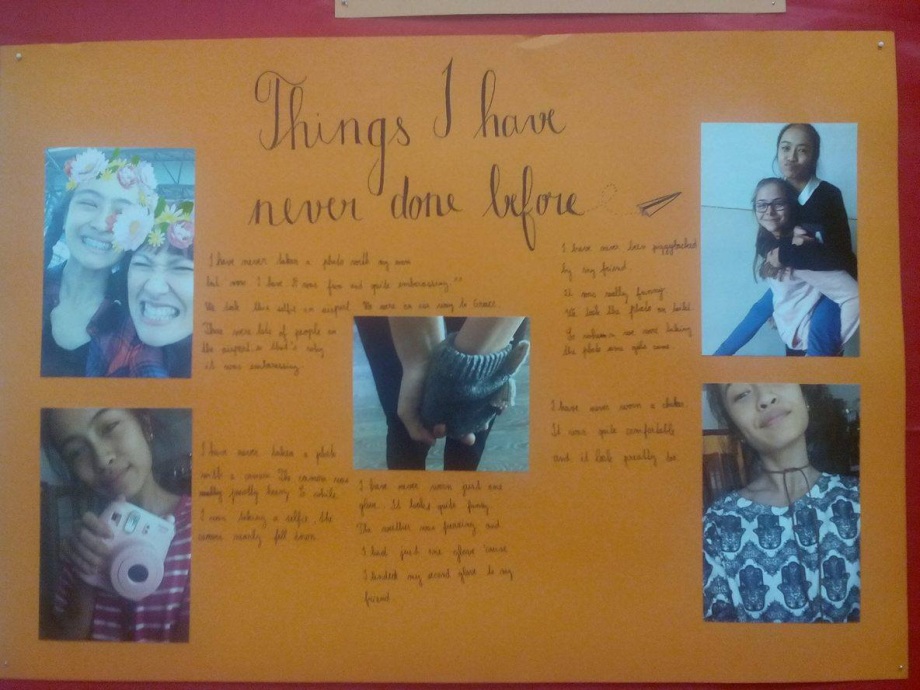 Things I have
never done before
I have never taken a photo with my mom
but now I have It was fun and quite embarassing ^^
We took this selfie in airport. We were on our way to
There were lots of people in
the airport so that's why
it was embarrassing.
I have never been piggybacked
by my friend
It was really funny.
We took the photo
we were taking
the photo one
I have never taken a photo
with a camera The camera was
really heavy to
I was taking a selfie the
camera nearly fell down
I have never worn just one
glove. It looks quite funny.
The weather was freezing and
I had just one glove 'cause
I landed my second glove to my
friend.
I have never worn a choker.
It was quite comfortable
and it look